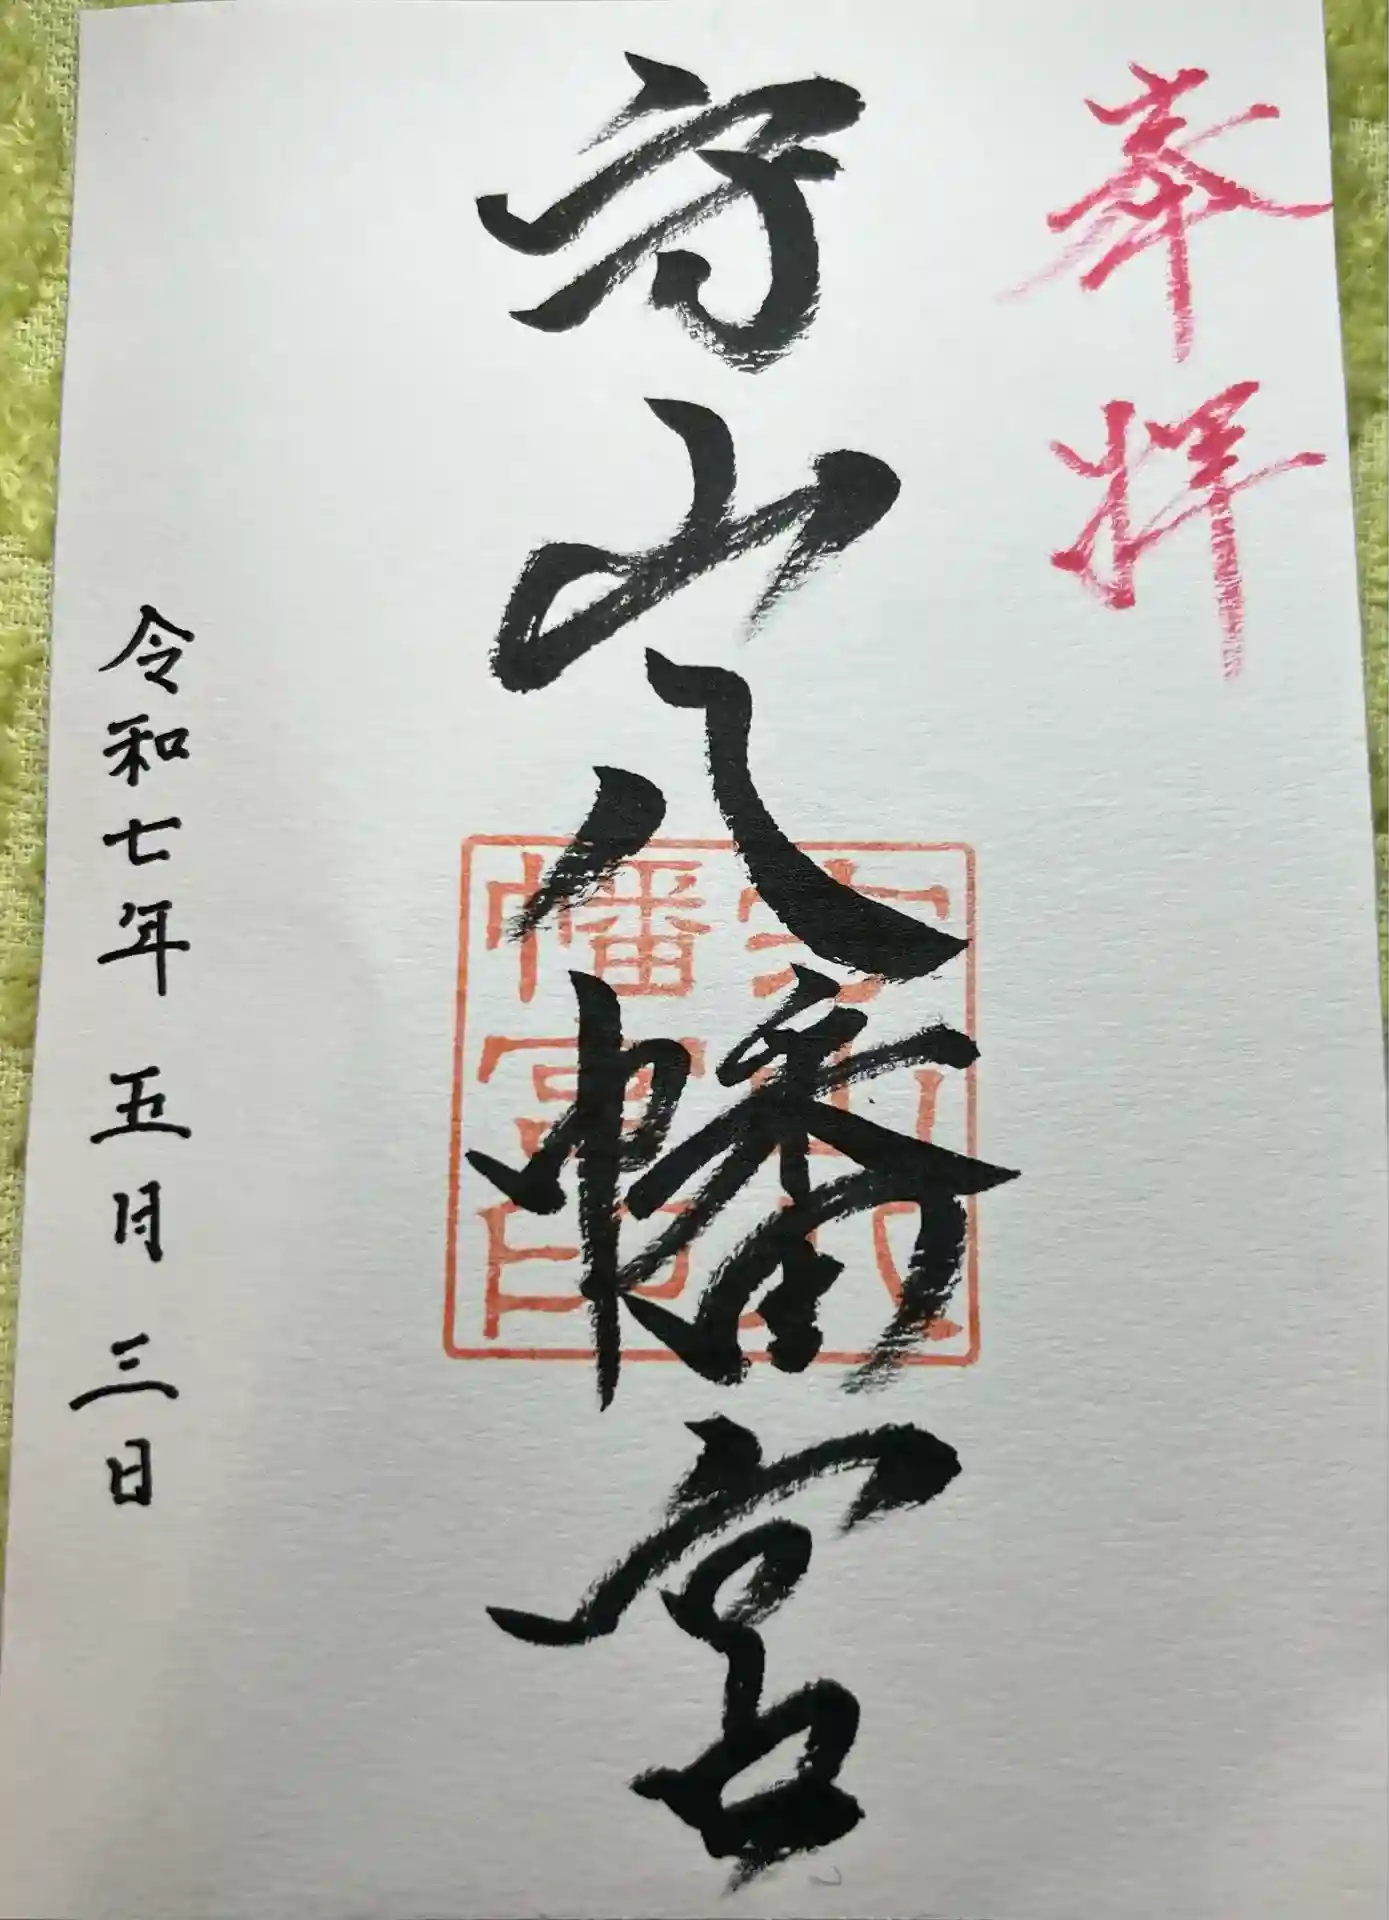 奉拝
守山八幡宮
守山八
幡宮印
令和七年 五月 三日